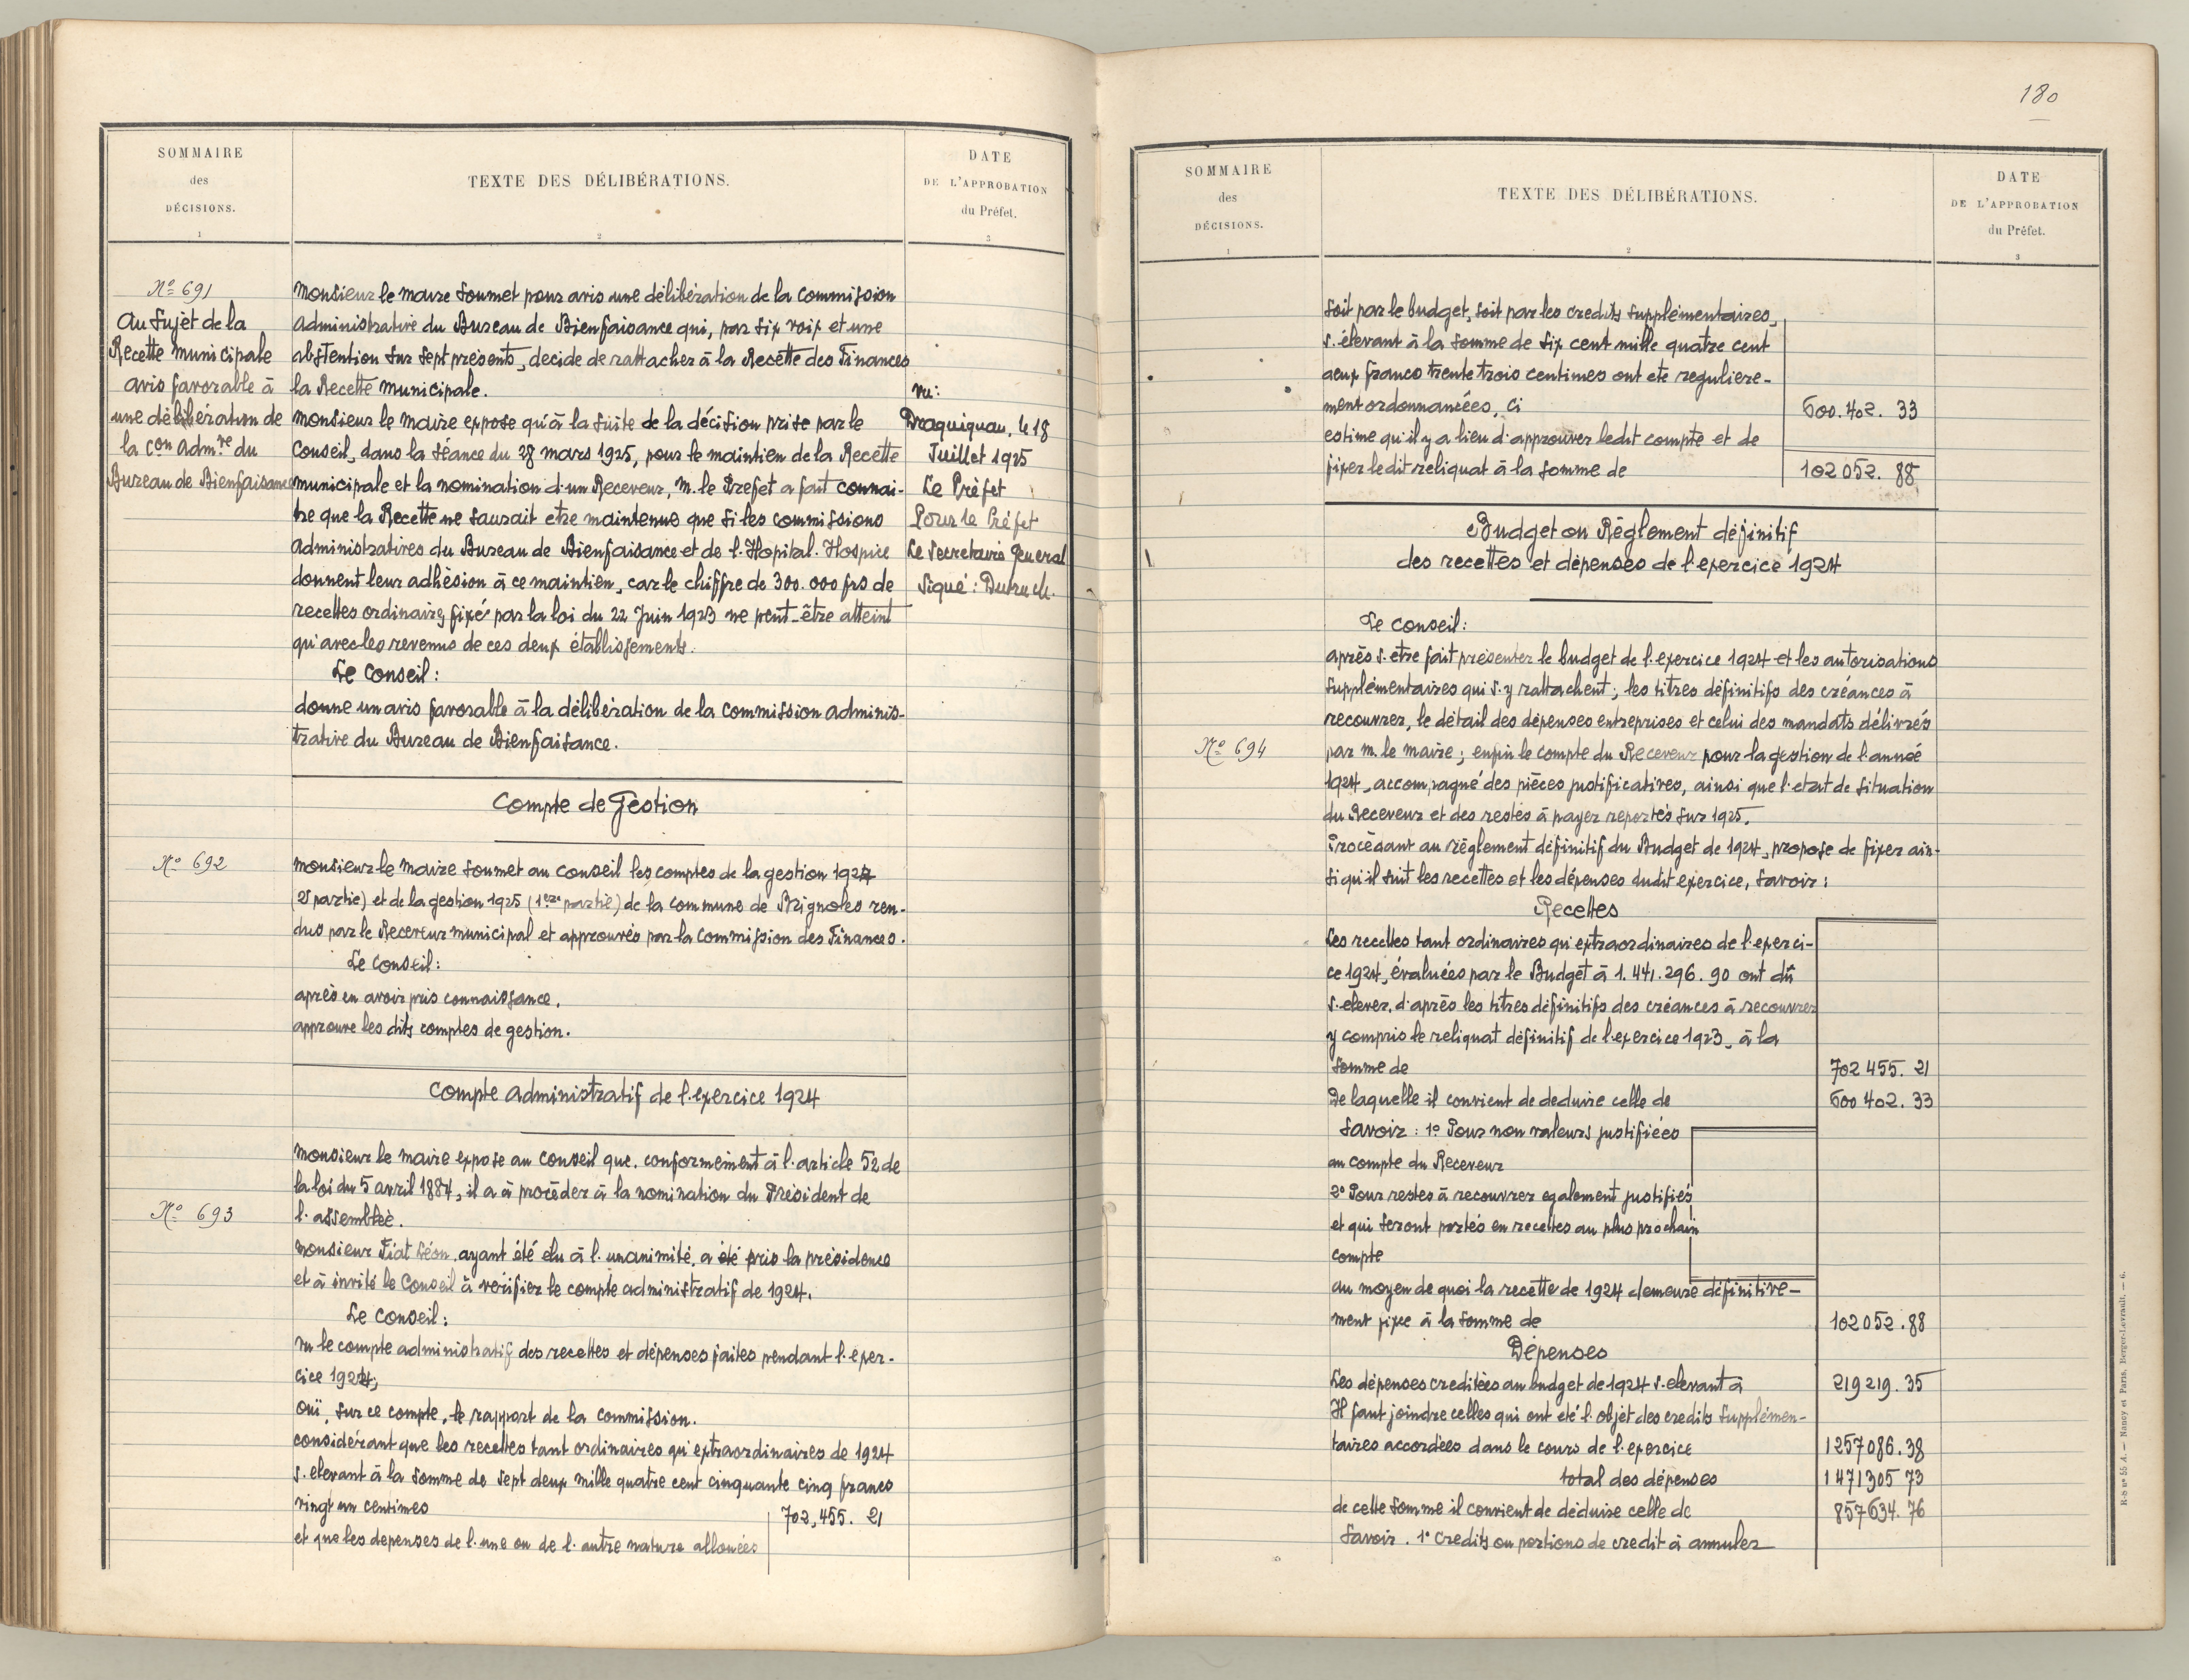 SOMMAIRE
des
DÉCISIONS.
1
TEXTE DES DÉLIBÉRATIONS.
2
DATE
DE L'APPROBATION
du Préfet.
3
Nº 691
Au Sujet de la
Recette municipale
avis favorable à
une délibération de
la Con Adm.re du
Bureau de Bienfaisance
Monsieur le maire soumet pour avis une délibération de la Commission
Administrative du Bureau de Bienfaisance qui, par six voix et une
abstention sur sept présents, decide de rattacher à la Recette des Finances
la Recette municipale.
Monsieur le maire expose qu'à la suite de la décision prise par le
Conseil, dans la séance du 28 mars 1925, pour le maintien de la Recette
municipale et la nomination d'un Receveur, M. le Prefet a fait connai-
tre que la Recette ne saurait etre maintenue que si les commissions
Administratives du Bureau de Bienfaisance et de l'Hopital-Hospice
donnent leur adhésion à ce maintien, car le chiffre de 300.000 frs de
recettes ordinaires fixé par la loi du 22 Juin 1923 ne peut-être atteint
qu'avec les revenus de ces deux établissements.
Le Conseil :
donne un avis favorable à la délibération de la Commission adminis-
trative du Bureau de Bienfaisance.
Vu :
Draguignan, le 18
Juillet 1925
Le Préfet
Pour le Préfet
Le Secretaire General
Signé : Dutruch.
Compte de Gestion
Nº 692
Monsieur le Maire soumet au Conseil les comptes de la gestion 1924
(2e partie) et de la gestion 1925 (1ere partie) de la commune de Brignoles ren-
dus par le Receveur municipal et approuvés par la Commission des Finances.
Le Conseil :
après en avoir pris connaissance,
approuve les dits comptes de gestion.
Compte administratif de l'exercice 1924
Nº 693
Monsieur le maire expose au Conseil que, conformément à l'article 52 de
la loi du 5 avril 1884, il a à procéder à la nomination du Président de
l'assemblée.
Monsieur Fiat Léon, ayant été élu à l'unanimité, a été pris la présidence
et à invité le Conseil à vérifier le compte administratif de 1924.
Le Conseil :
Vu le compte administratif des recettes et dépenses faites pendant l'exer-
cice 1924,
Oui, sur ce compte, le rapport de la commission.
considérant que les recettes tant ordinaires qu'extraordinaires de 1924
s'elevant à la somme de sept deux mille quatre cent cinquante cinq francs
vingt un centimes 702,455. 21
et que les depenses de l'une ou de l'autre nature allouées
180
SOMMAIRE
des
DÉCISIONS.
1
TEXTE DES DÉLIBÉRATIONS.
2
DATE
DE L'APPROBATION
du Préfet.
3
soit par le budget, soit par les credits supplémentaires,
s'élevant à la somme de six cent mille quatre cent
deux francs trente trois centimes ont ete reguliere-
ment ordonnancées, ci 600.402. 33
estime qu'il y a lieu d'approuver ledit compte et de
fixer ledit reliquat à la somme de 102 052. 88
Budget ou Règlement définitif
des recettes et dépenses de l'exercice 1924
Le Conseil :
après s'etre fait présenter le budget de l'exercice 1924 et les autorisations
supplémentaires qui s'y rattachent ; les titres définitifs des créances à
recouvrer, le détail des dépenses entreprises et celui des mandats délivrés
Nº 694
par M. le Maire ; enfin le compte du Receveur pour la gestion de l'année
1924, accompagné des pièces justificatives, ainsi que l'etat de situation
du Receveur et des restes à payer reportés sur 1925.
Procédant au règlement définitif du Budget de 1924, propose de fixer ain-
si qu'il suit les recettes et les dépenses dudit exercice, savoir :
Recettes
Les recettes tant ordinaires qu'extraordinaires de l'exerci-
ce 1924, évaluées par le Budget à 1.441.296.90 ont dû
s'elever, d'après les titres définitifs des créances à recouvrer
y compris le reliquat définitif de l'exercice 1923, à la
somme de 702 455. 21
De laquelle il convient de deduire celle de 600 402. 33
Savoir : 1º Pour non valeurs justifiées
au compte du Receveur
2º Pour restes à recouvrer egalement justifiés
et qui seront portés en recettes au plus prochain
compte
au moyen de quoi la recette de 1924 demeure définitive-
ment fixée à la somme de 102052.88
Dépenses
Les dépenses creditées au budget de 1924 s'elevant à 219219. 35
Il faut joindre celles qui ont eté l'objet des credits supplémen-
taires accordées dans le cours de l'exercice 1257086.38
total des dépenses 1471305 73
de cette somme il convient de déduire celle de 857634. 76
Savoir. 1º Credits ou portions de credit à annuler
R-5 nº 55 A. — Nancy et Paris, Berger-Levrault. — 6.